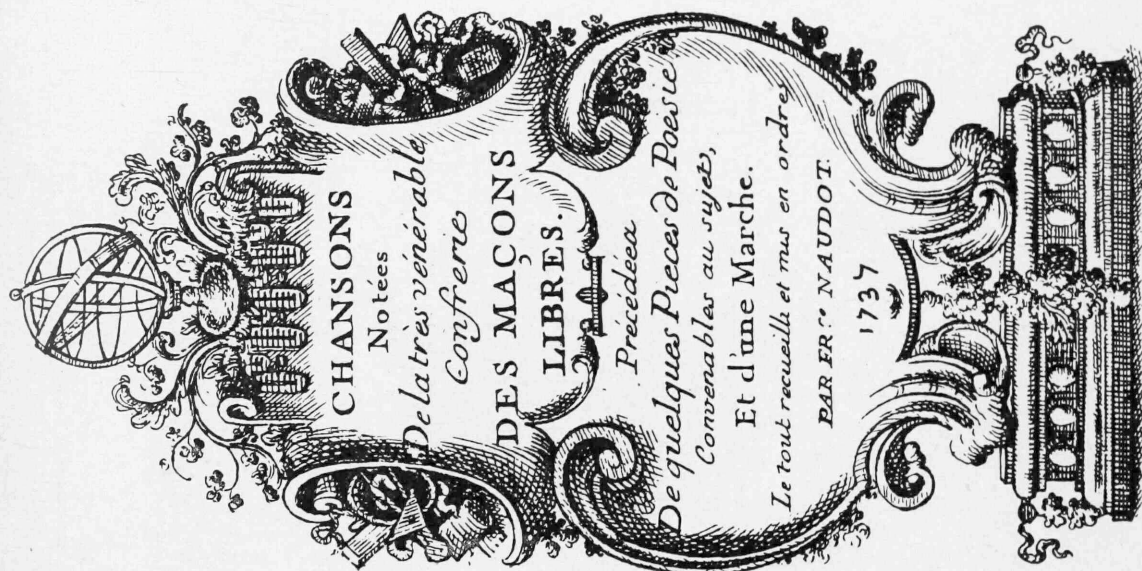 CHANSONS
Notées
De la très vénérable
Confrerie
DES MAÇONS
LIBRES.
Précédéea
De quelques Pieces de Poesie
Convenables au sujet,
Et d'une Marche.
Le tout recueilli et mis en ordre
PAR FR.re NAUDOT
1737